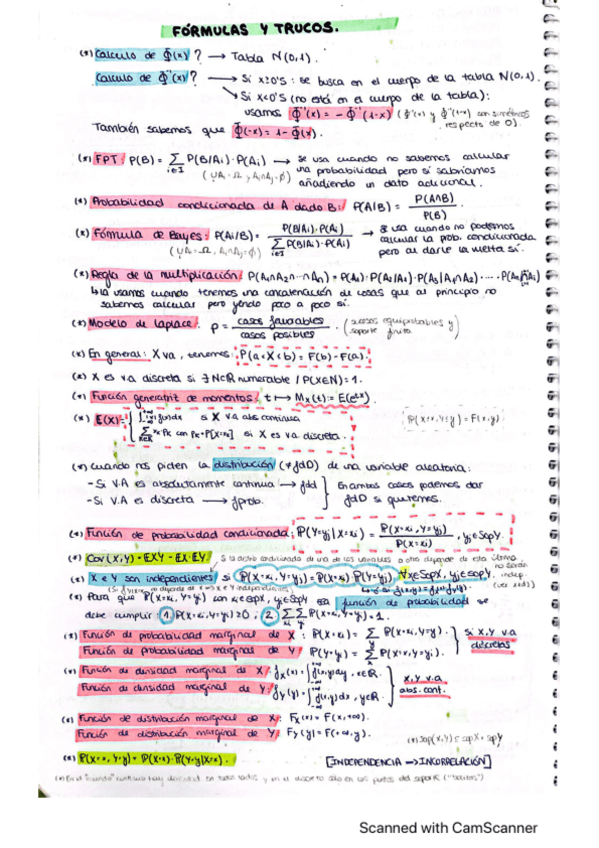 FÓRMULAS Y TRUCOS.
(*) Calculo de Φ(x)? → Tabla N(0,1).
Calculo de Φ⁻¹(x)? → Si x≥0'5: se busca en el cuerpo de la tabla N(0,1).
Si x<0'5 (no está en el cuerpo de la tabla):
usamos Φ⁻¹(x) = -Φ⁻¹(1-x) (Φ⁻¹(x) y Φ⁻¹(1-x) son simétricos respecto de 0).
También sabemos que Φ(-x) = 1-Φ(x).
(*) FPT: P(B) = Σ P(B/Ai)·P(Ai) → se usa cuando no sabemos calcular
i∈I
(∪Ai=Ω, Ai∩Aj=∅)
una probabilidad pero sí sabríamos
añadiendo un dato adicional.
(*) Probabilidad condicionada de A dado B: P(A/B) = P(A∩B) / P(B)
(*) Fórmula de Bayes: P(Ai/B) = P(B/Ai)·P(Ai) / Σ P(B/Ai)·P(Ai) → se usa cuando no podemos
(∪Ai=Ω, Ai∩Aj=∅)
calcular la prob. condicionada
pero al darle la vuelta sí.
(*) Regla de la multiplicación: P(A1∩A2∩···∩An) = P(A1)·P(A2/A1)·P(A3/A1∩A2)·...·
↳ la usamos cuando tenemos una concatenación de cosas que al principio no
sabemos calcular pero yendo poco a poco sí.
(*) Modelo de Laplace: P = casos favorables / casos posibles. (sucesos equiprobables y soporte finito)
(*) En general: X va, tenemos: P(a<X<b) = F(b)-F(a).
(*) X es v.a discreta si ∃N⊂R numerable / P(X∈N)=1.
(*) Función generatriz de momentos: t ↦ Mx(t) = E(e^tx).
(*) E(X) = si X v.a abs continua
Σ xk·Pk con Pk=P[X=xk] si X es v.a discreta.
k∈K
P(X≤x, Y≤y) = F(x,y).
(*) Cuando nos piden la distribución (≠fdD) de una variable aleatoria:
- Si V.A es absolutamente continua → fdd
- Si V.A es discreta → fprob.
En ambos casos podemos dar
fdD si queremos.
(*) Función de probabilidad condicionada: P(Y=yj|X=xi) = P(X=xi, Y=yj) / P(X=xi), yj∈SopY.
(*) Cov(X,Y) = EXY - EX·EY
(*) X e Y son independientes si P(X=xi, Y=yj) = P(X=xi)·P(Y=yj), ∀xi∈SopX, yj∈SopY.
(*) Para que P(X=xi, Y=yj) con xi∈SopX, yj∈SopY sea función de probabilidad se
debe cumplir 1. P(X=xi, Y=yj)≥0; 2. ΣΣ P(X=xi, Y=yj)=1.
(*) Función de probabilidad marginal de X: P(X=xi) = Σ P(X=xi, Y=yj).
Función de probabilidad marginal de Y: P(Y=yj) = Σ P(X=xi, Y=yj).
si X,Y v.a
discretas
(*) Función de densidad marginal de X: fx(x) = ∫ f(x,y)dy, x∈R.
Función de densidad marginal de Y: fy(y) = ∫ f(x,y)dx, y∈R.
X,Y v.a
abs. cont.
(*) Función de distribución marginal de X: Fx(x) = F(x,+∞).
Función de distribución marginal de Y: Fy(y) = F(+∞,y).
(*) Sop(X,Y) ⊆ SopX × SopY
(*) P(X=x, Y=y) = P(X=x)·P(Y=y|X=x).
[INDEPENDENCIA → INCORRELACIÓN]
Scanned with CamScanner